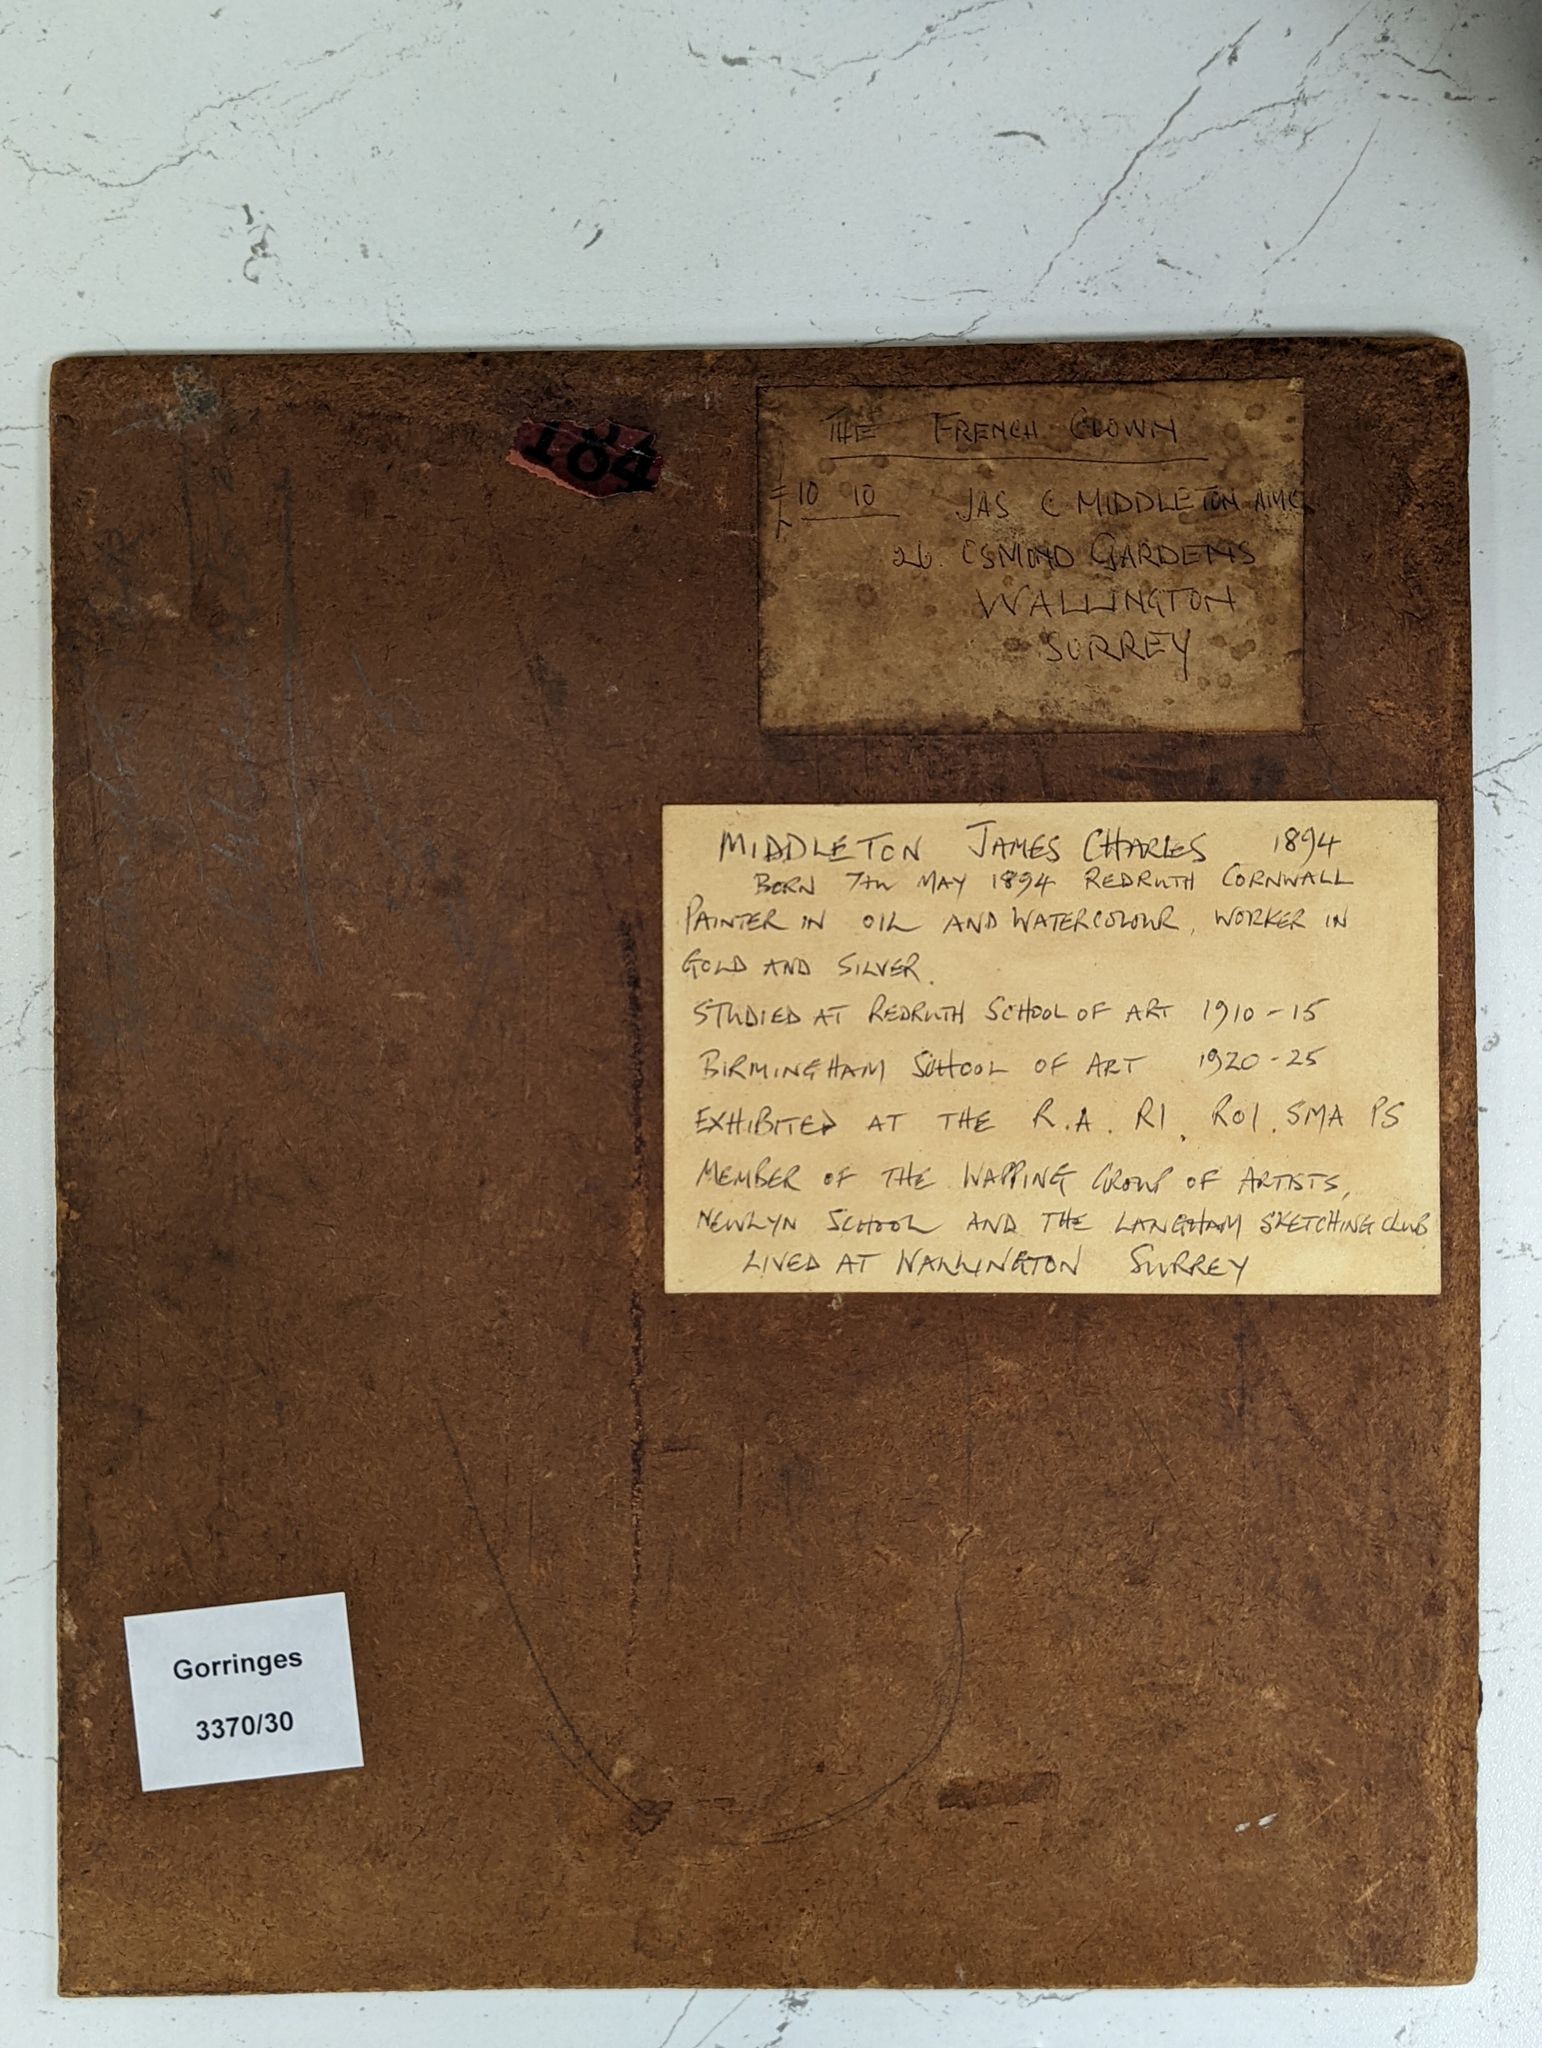 184
THE FRENCH CLOWN
10 10 JAS C MIDDLETON
26. OSMOND GARDENS
WALLINGTON
SURREY
MIDDLETON JAMES CHARLES 1894
BORN 7TH MAY 1894 REDRUTH CORNWALL
PAINTER IN OIL AND WATERCOLOUR, WORKER IN
GOLD AND SILVER.
STUDIED AT REDRUTH SCHOOL OF ART 1910-15
BIRMINGHAM SCHOOL OF ART 1920-25
EXHIBITED AT THE R.A. RI, ROI. SMA PS
MEMBER OF THE WAPPING GROUP OF ARTISTS,
NEWLYN SCHOOL AND THE LANGHAM SKETCHING CLUB
LIVED AT WALLINGTON SURREY
Gorringes
3370/30